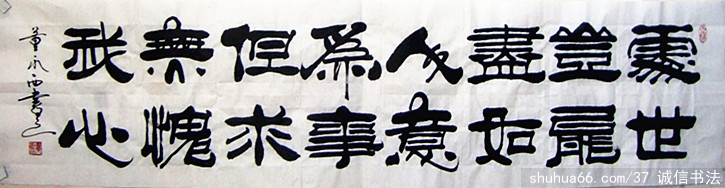 處世
豈能
盡如
人意
爲事
但求
無愧
我心
shuhua66.com/37 诚信书法